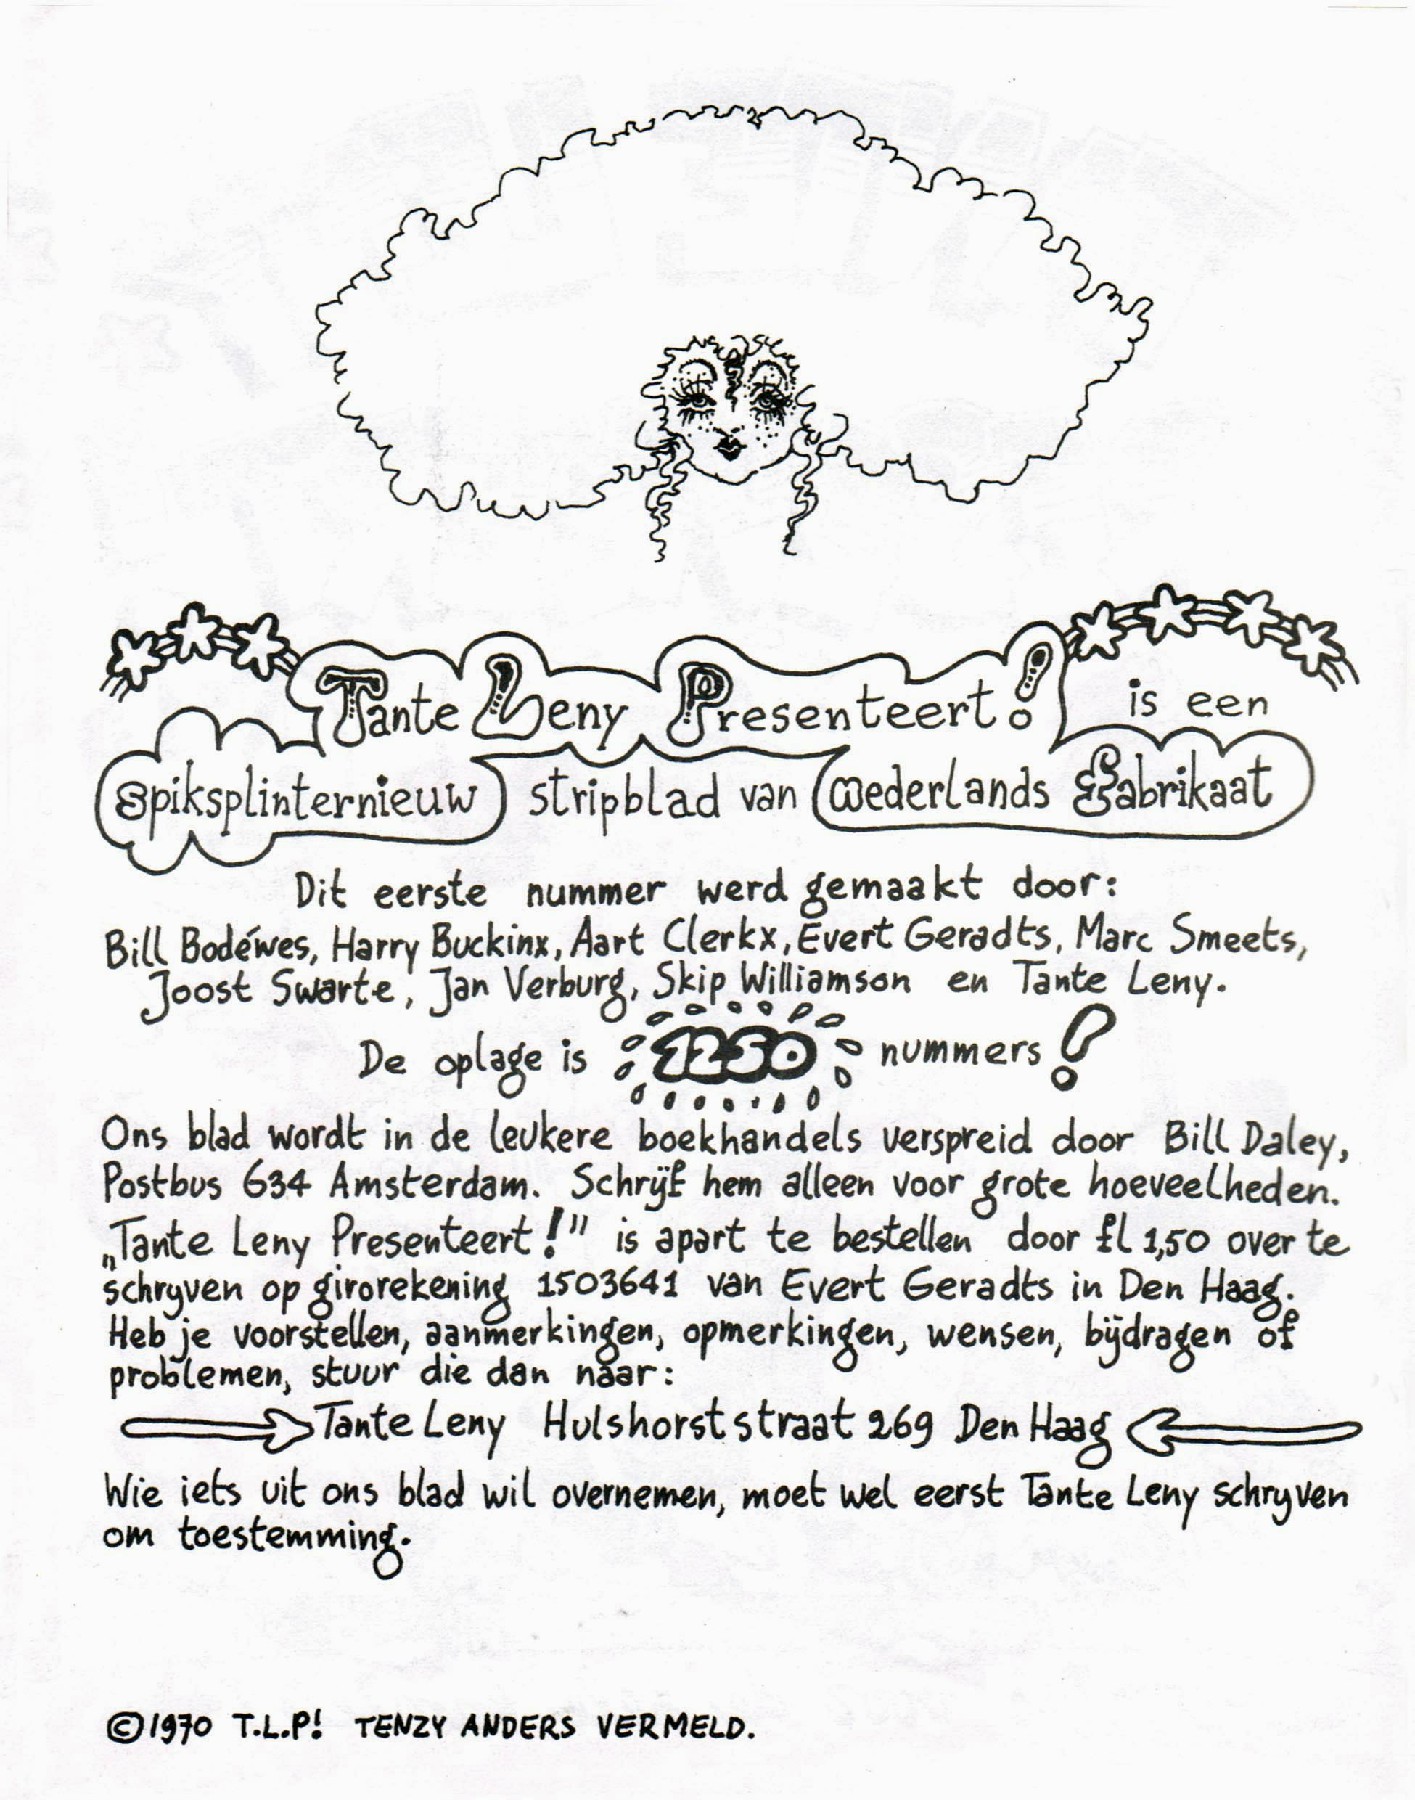 Tante Leny Presenteert! is een
Spiksplinternieuw stripblad van Nederlands Fabrikaat
Dit eerste nummer werd gemaakt door:
Bill Bodéwes, Harry Buckinx, Aart Clerkx, Evert Geradts, Marc Smeets,
Joost Swarte, Jan Verburg, Skip Williamson en Tante Leny.
De oplage is 1250 nummers!
Ons blad wordt in de leukere boekhandels verspreid door Bill Daley,
Postbus 634 Amsterdam. Schrijf hem alleen voor grote hoeveelheden.
„Tante Leny Presenteert!” is apart te bestellen door fl 1,50 over te
schryven op girorekening 1503641 van Evert Geradts in Den Haag.
Heb je voorstellen, aanmerkingen, opmerkingen, wensen, bijdragen of
problemen, stuur die dan naar:
Tante Leny Hulshorststraat 269 Den Haag
Wie iets uit ons blad wil overnemen, moet wel eerst Tante Leny schryven
om toestemming.
©1970 T.L.P! TENZY ANDERS VERMELD.